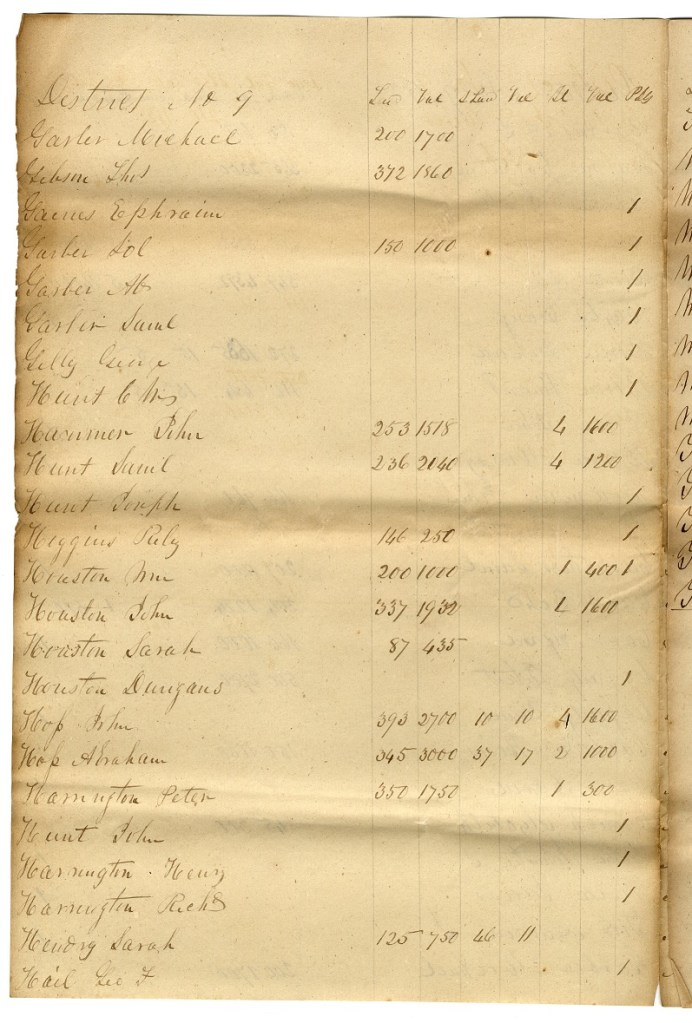 District No 9 Lan Val S Lan Val Sl Val Pls
Garber Michael 200 1700
Gibson Thos 372 1860
Gaines Ephraim 1
Garber Sol 150 1000 1
Garber Ab 1
Garber Saml 1
Gelly George 1
Hunt C 1
Hammer John 253 1518 4 1600
Hunt Saml 236 2040 4 1200
Hunt Joseph 1
Higgins 146 250 1
Houston Wm 200 1000 1 400 1
Houston John 337 1932 1600
Houston Sarah 87 435
Houston 1
Hoss John 393 2700 10 10 4 1600
Hoss Abraham 345 3000 37 17 2 1000
Harrington Peter 350 1750 1 300
Hunt John 1
Harrington Henry 1
Harrington Richd 1
Hendry Sarah 125 750 46 11
Hail Geo F 1